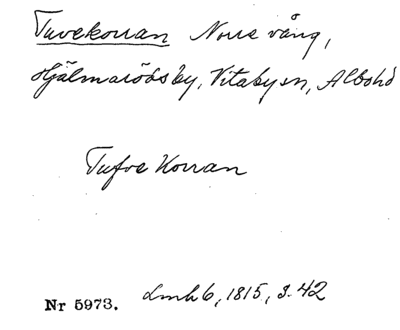 Tuvekorran Norre vång,
Hjälmarödsby, Vitaby sn, Albohd
Tufve Korran
Nr 5973. Lmh 6, 1815, s. 42